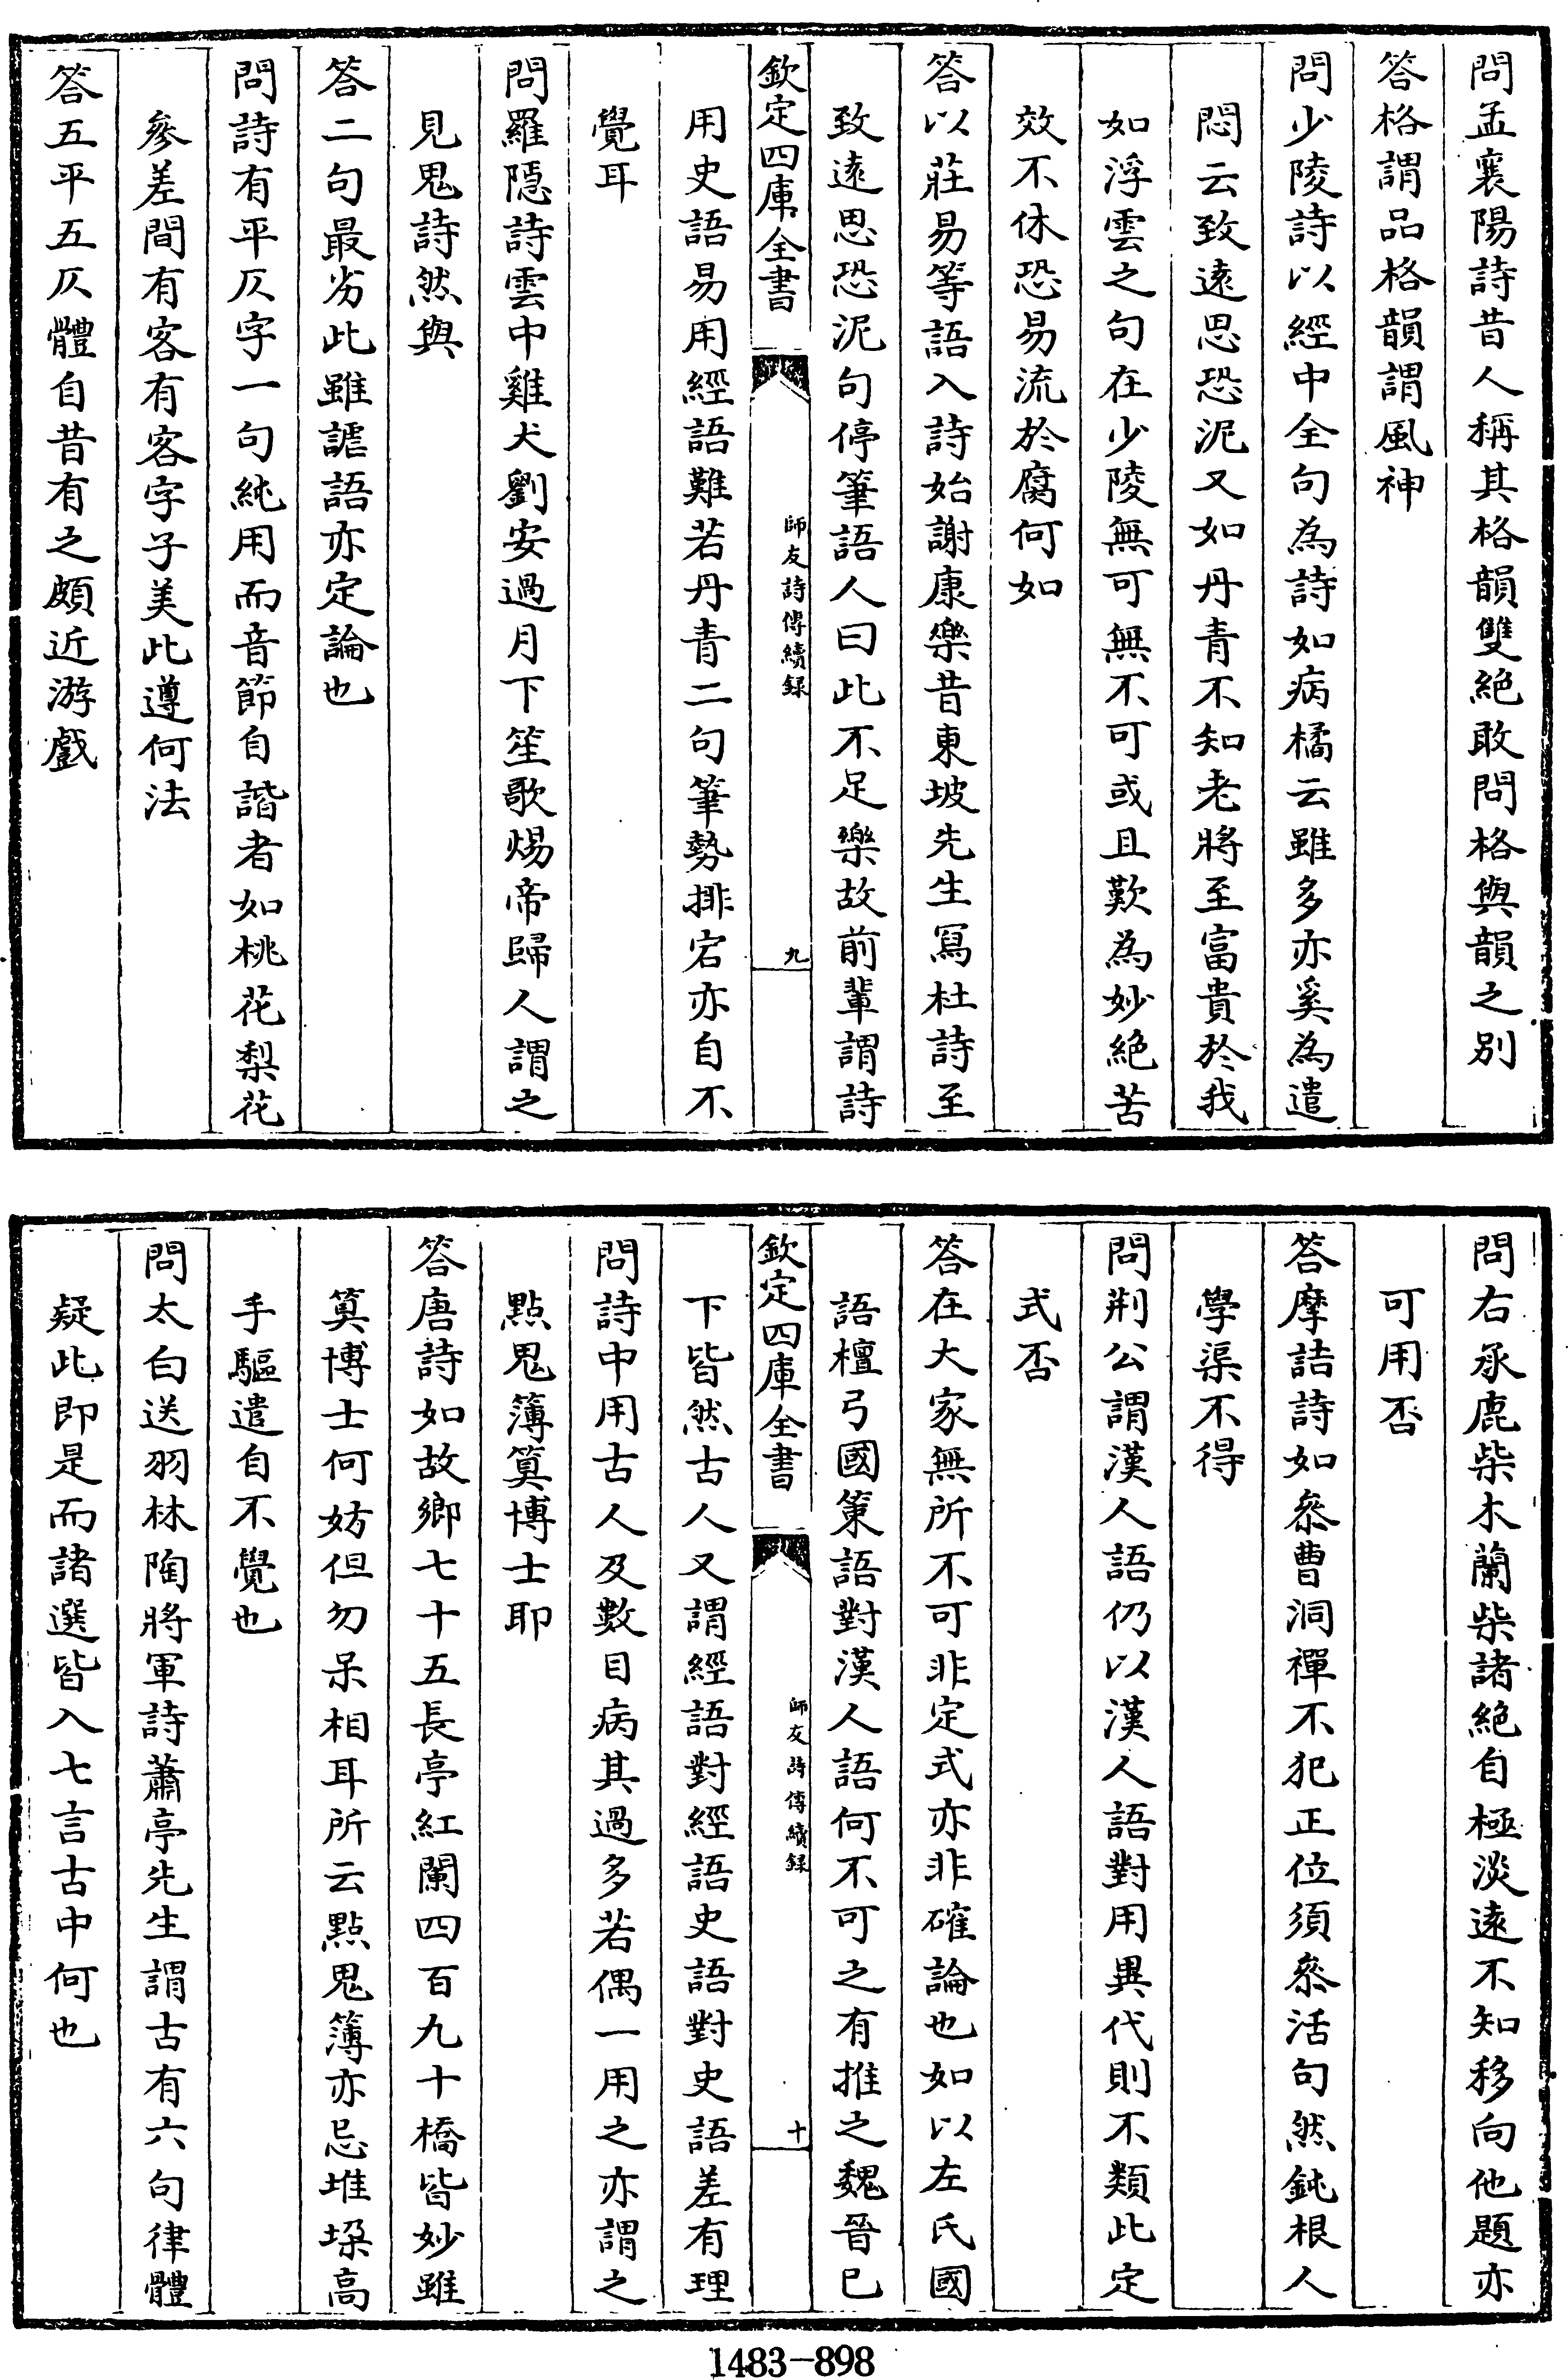 問孟襄陽詩昔人稱其格韻雙絶敢問格與韻之别
答格謂品格韻謂風神
問少陵詩以經中全句為詩如病橘云雖多亦奚為遣
悶云致遠思恐泥又如丹青不知老將至富貴於我
如浮雲之句在少陵無可無不可或且歎為妙絶苦
效不休恐易流於腐何如
答以莊易等語入詩始謝康樂昔東坡先生冩杜詩至
致遠思恐泥句停筆語人曰此不足樂故前輩謂詩
欽定四庫全書
師友詩傳續録
九
用史語易用經語難若丹青二句筆勢排宕亦自不
覺耳
問羅隱詩雲中雞犬劉安過月下笙歌煬帝歸人謂之
見鬼詩然與
答二句最劣此雖謔語亦定論也
問詩有平仄字一句純用而音節自諧者如桃花梨花
參差間有客有客字子美此遵何法
答五平五仄體自昔有之頗近游戲
問右丞鹿柴木蘭柴諸絶自極淡遠不知移向他題亦
可用否
答摩詰詩如叅曹洞禪不犯正位須叅活句然鈍根人
學渠不得
問荆公謂漢人語仍以漢人語對用異代則不類此定
式否
答在大家無所不可非定式亦非確論也如以左氏國
語檀弓國策語對漢人語何不可之有推之魏晉已
欽定四庫全書
師友詩傳續録
十
下皆然古人又謂經語對經語史語對史語差有理
問詩中用古人及數目病其過多若偶一用之亦謂之
點鬼簿算博士耶
答唐詩如故鄉七十五長亭紅闌四百九十橋皆妙雖
算博士何妨但勿呆相耳所云點鬼簿亦忌堆垜高
手驅遣自不覺也
問太白送羽林陶將軍詩蕭亭先生謂古有六句律體
疑此即是而諸選皆入七言古中何也
1483-898